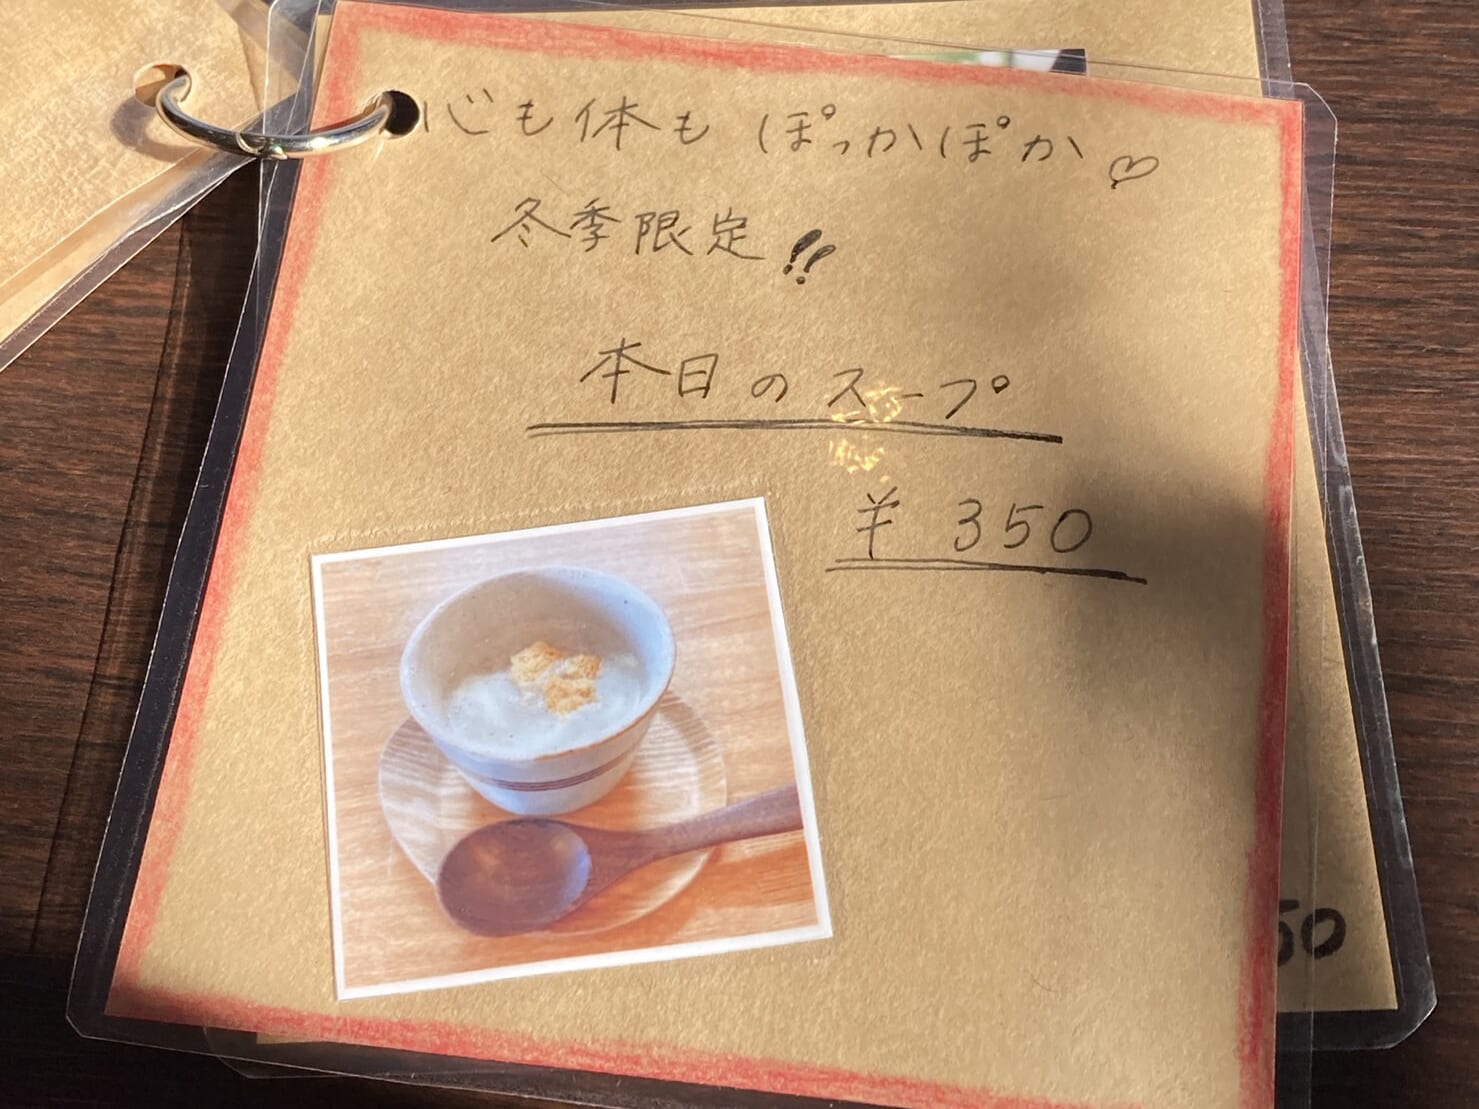 心も体も ぽっかぽか♡
冬季限定!!
本日のスープ
¥ 350
50